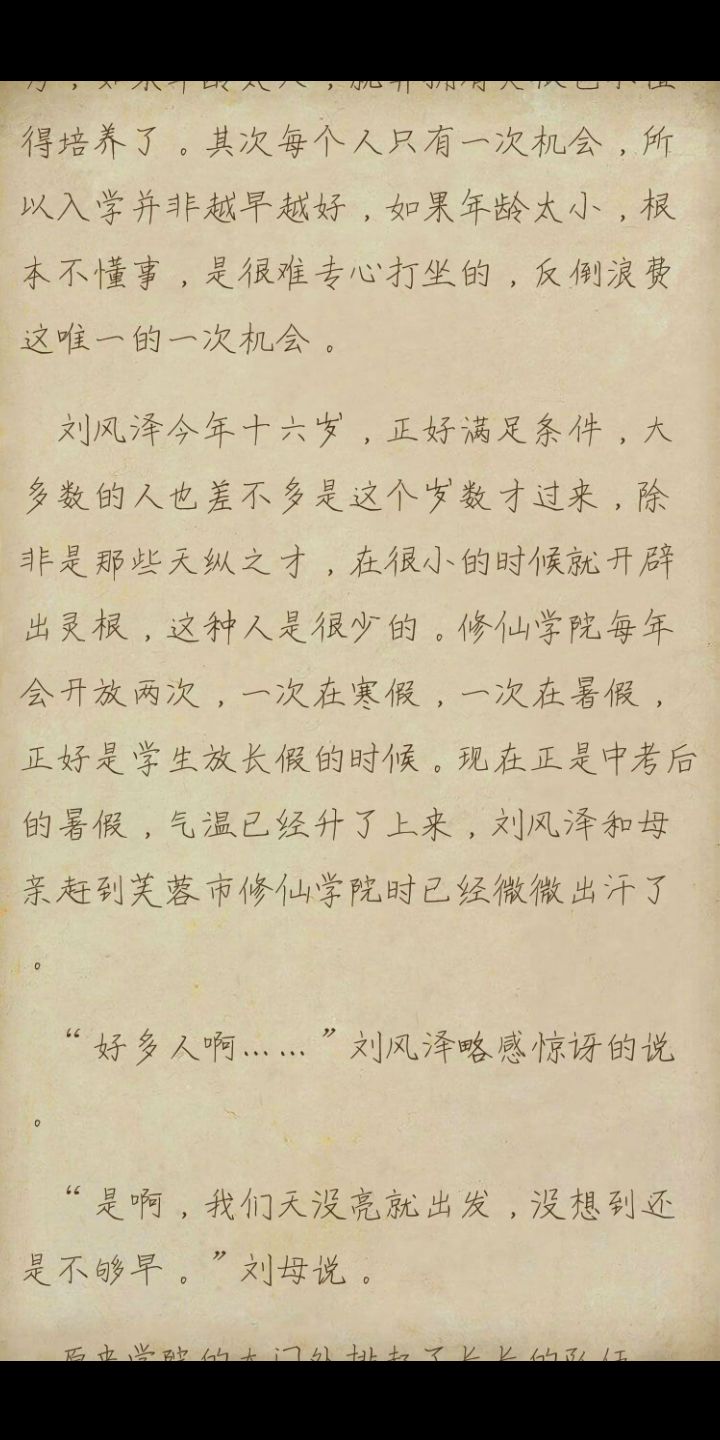 得培养了。其次每个人只有一次机会，所
以入学并非越早越好，如果年龄太小，根
本不懂事，是很难专心打坐的，反倒浪费
这唯一的一次机会。
刘风泽今年十六岁，正好满足条件，大
多数的人也差不多是这个岁数才过来，除
非是那些天纵之才，在很小的时候就开辟
出灵根，这种人是很少的。修仙学院每年
会开放两次，一次在寒假，一次在暑假，
正好是学生放长假的时候。现在正是中考后
的暑假，气温已经升了上来，刘风泽和母
亲赶到芙蓉市修仙学院时已经微微出汗了
。
“好多人啊……”刘风泽略感惊讶的说
。
“是啊，我们天没亮就出发，没想到还
是不够早。”刘母说。
原来学院的大门外排起了长长的队伍